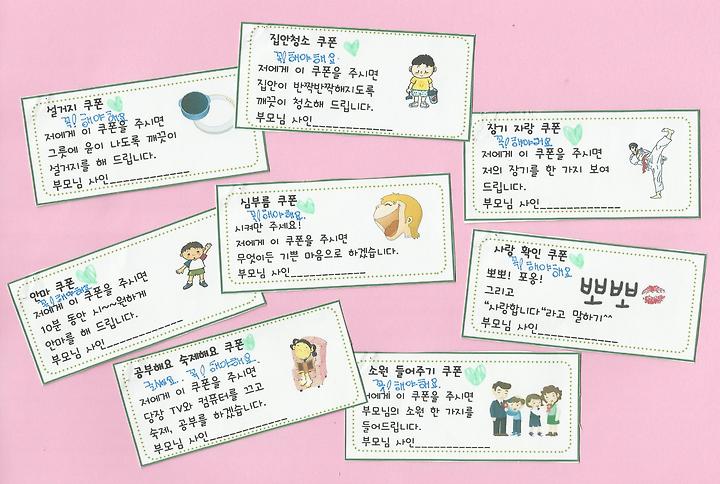 집안청소 쿠폰
꼭! 해야 해요.
저에게 이 쿠폰을 주시면
집안이 반짝반짝해지도록
깨끗이 청소해 드립니다.
부모님 사인_____________
설거지 쿠폰
꼭! 해야 해요
저에게 이 쿠폰을 주시면
그릇에 윤이 나도록 깨끗이
설거지를 해 드립니다.
부모님 사인_____________
장기 자랑 쿠폰
꼭! 해야해요
저에게 이 쿠폰을 주시면
저의 장기를 한 가지 보여
드립니다.
부모님 사인_____________
심부름 쿠폰
꼭! 해야해요.
시켜만 주세요!
저에게 이 쿠폰을 주시면
무엇이든 기쁜 마음으로 하겠습니다.
부모님 사인_____________
안마 쿠폰
꼭! 해야해요
저에게 이 쿠폰을 주시면
10분 동안 시~~원하게
안마를 해 드립니다.
부모님 사인_____________
사랑 확인 쿠폰
꼭! 해야 해요
뽀뽀! 포옹!
그리고
"사랑합니다"라고 말하기^^
부모님 사인_____________
뽀뽀
공부해요 숙제해요 쿠폰
꼭! 해야해요.
저에게 이 쿠폰을 주시면
당장 TV와 컴퓨터를 끄고
숙제, 공부를 하겠습니다.
부모님 사인_____________
소원 들어주기 쿠폰
꼭! 해야해요.
저에게 이 쿠폰을 주시면
부모님의 소원 한 가지를
들어드립니다.
부모님 사인_____________